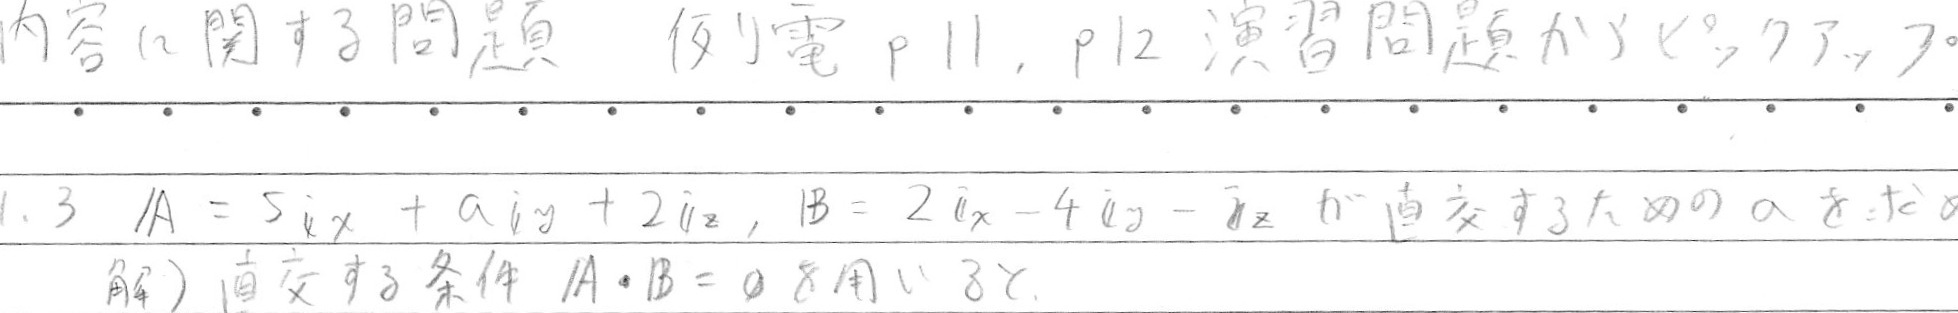 内容に関する問題　例り電 p11, p12 演習問題からピックアップ。
1.3 𝔸 = 5𝕚x + a𝕚y + 2𝕚z, 𝔹 = 2𝕚x - 4𝕚y - 𝕚z が直交するためのaを求め
解) 直交する条件 𝔸・𝔹 = 0 を用いると、